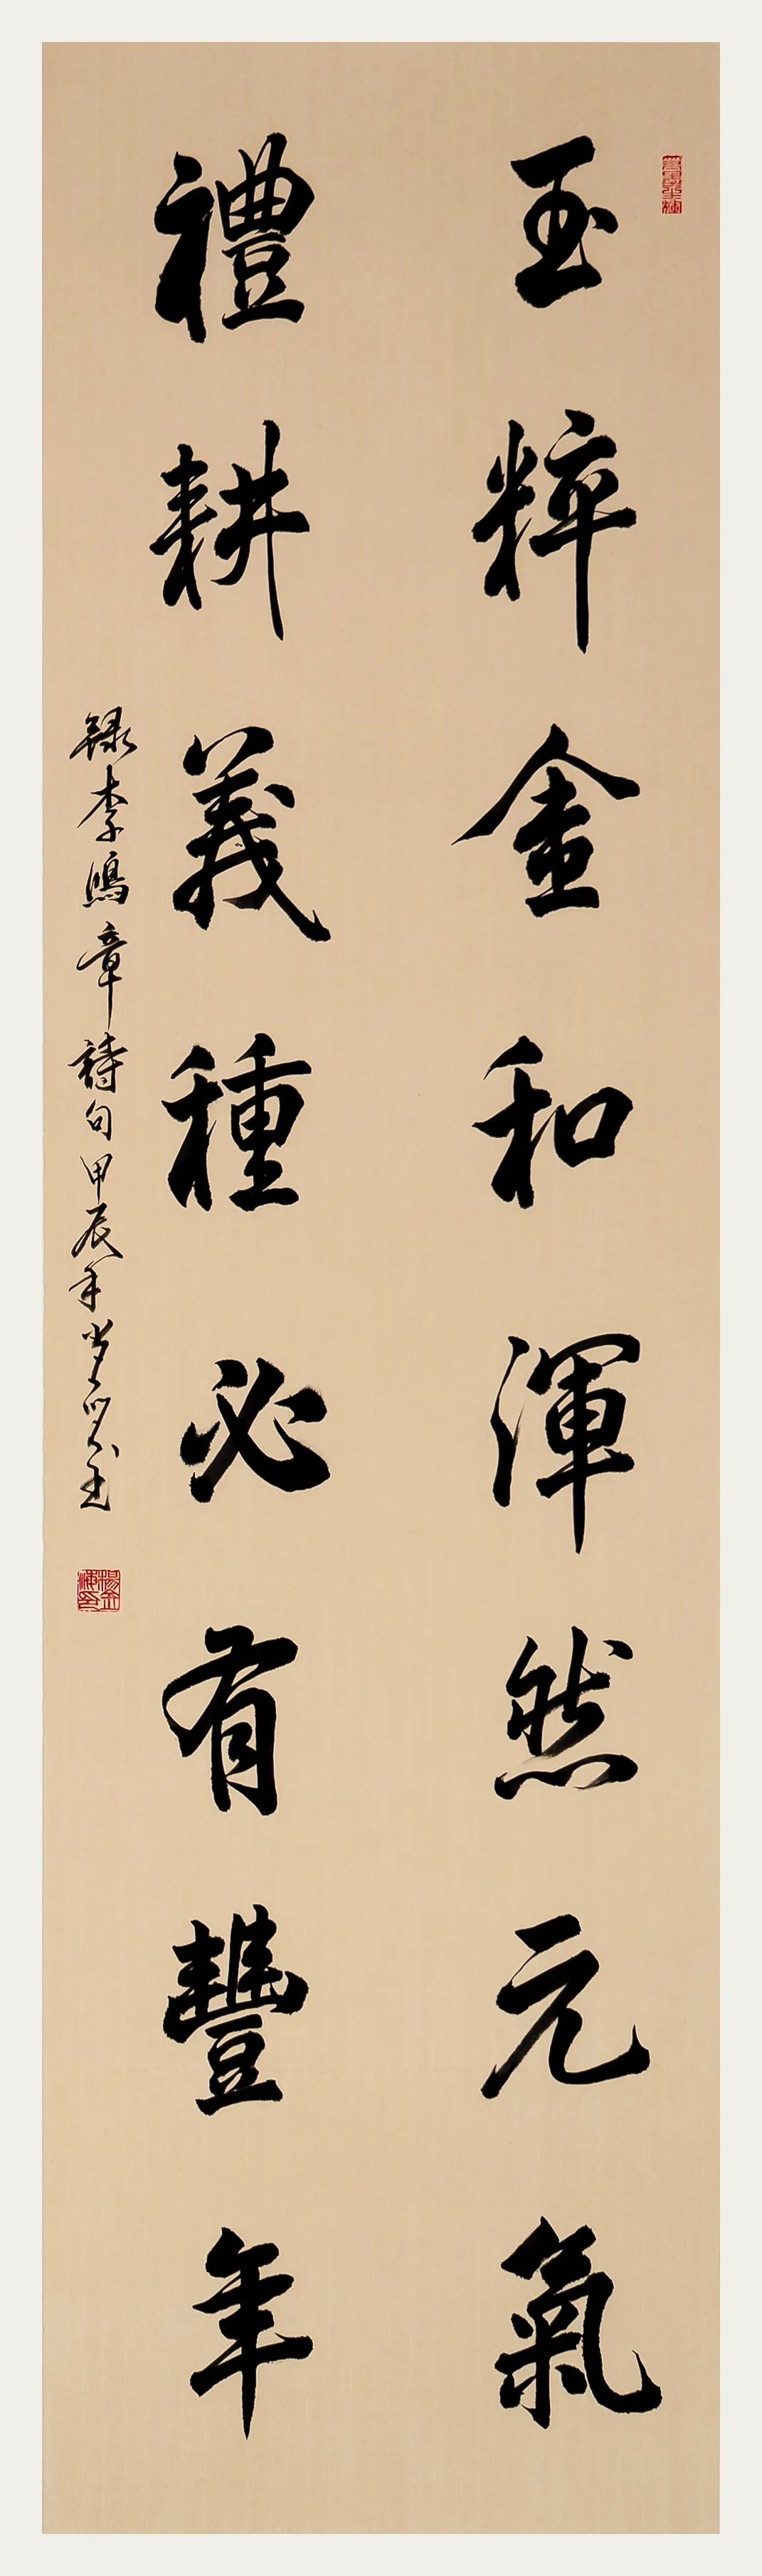 玉粹金和渾然元氣
禮耕義種必有豐年
錄李鴻章詩句甲辰年